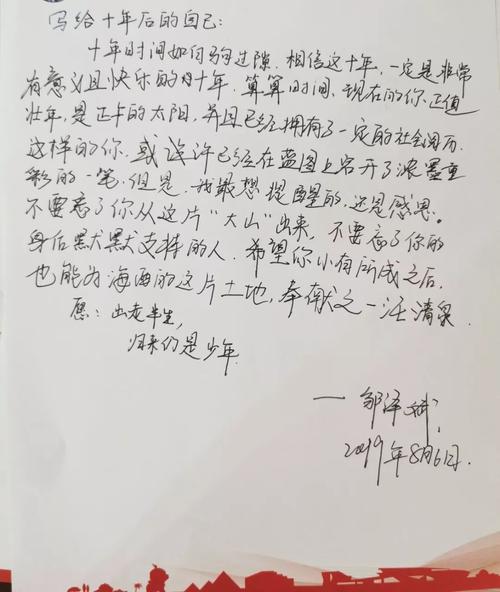 写给十年后的自己:
十年时间如白驹过隙. 相信这十年, 一定是非常
有意义且快乐的十年. 算算时间. 现在的你, 正值
壮年, 是正午的太阳, 并且已经拥有了一定的社会阅历
这样的你, 或许已经在蓝图上召开了浓墨重
彩的一笔. 但是, 我最想提醒的, 还是感恩.
不要忘了你从这片“大山”出来, 不要忘了你的
身后默默支持的人. 希望你小有所成之后,
也能为海西的这片土地, 奉献之一汪清泉.
愿: 出走半生,
归来仍是少年.
— 邹泽斌
2019年8月6日.